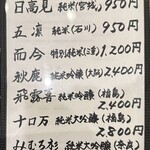 日髙見 純米(宮城) 950円
五凛 純米(石川) 950円
而今 特別純米(三重) 1,200円
秋鹿 純米吟醸(大阪) 2,400円
飛露喜 純米吟醸(福島) 2,400円
十口万 純米大吟醸(福島) 2,800円
みむろ杉 純米大吟醸(奈良)